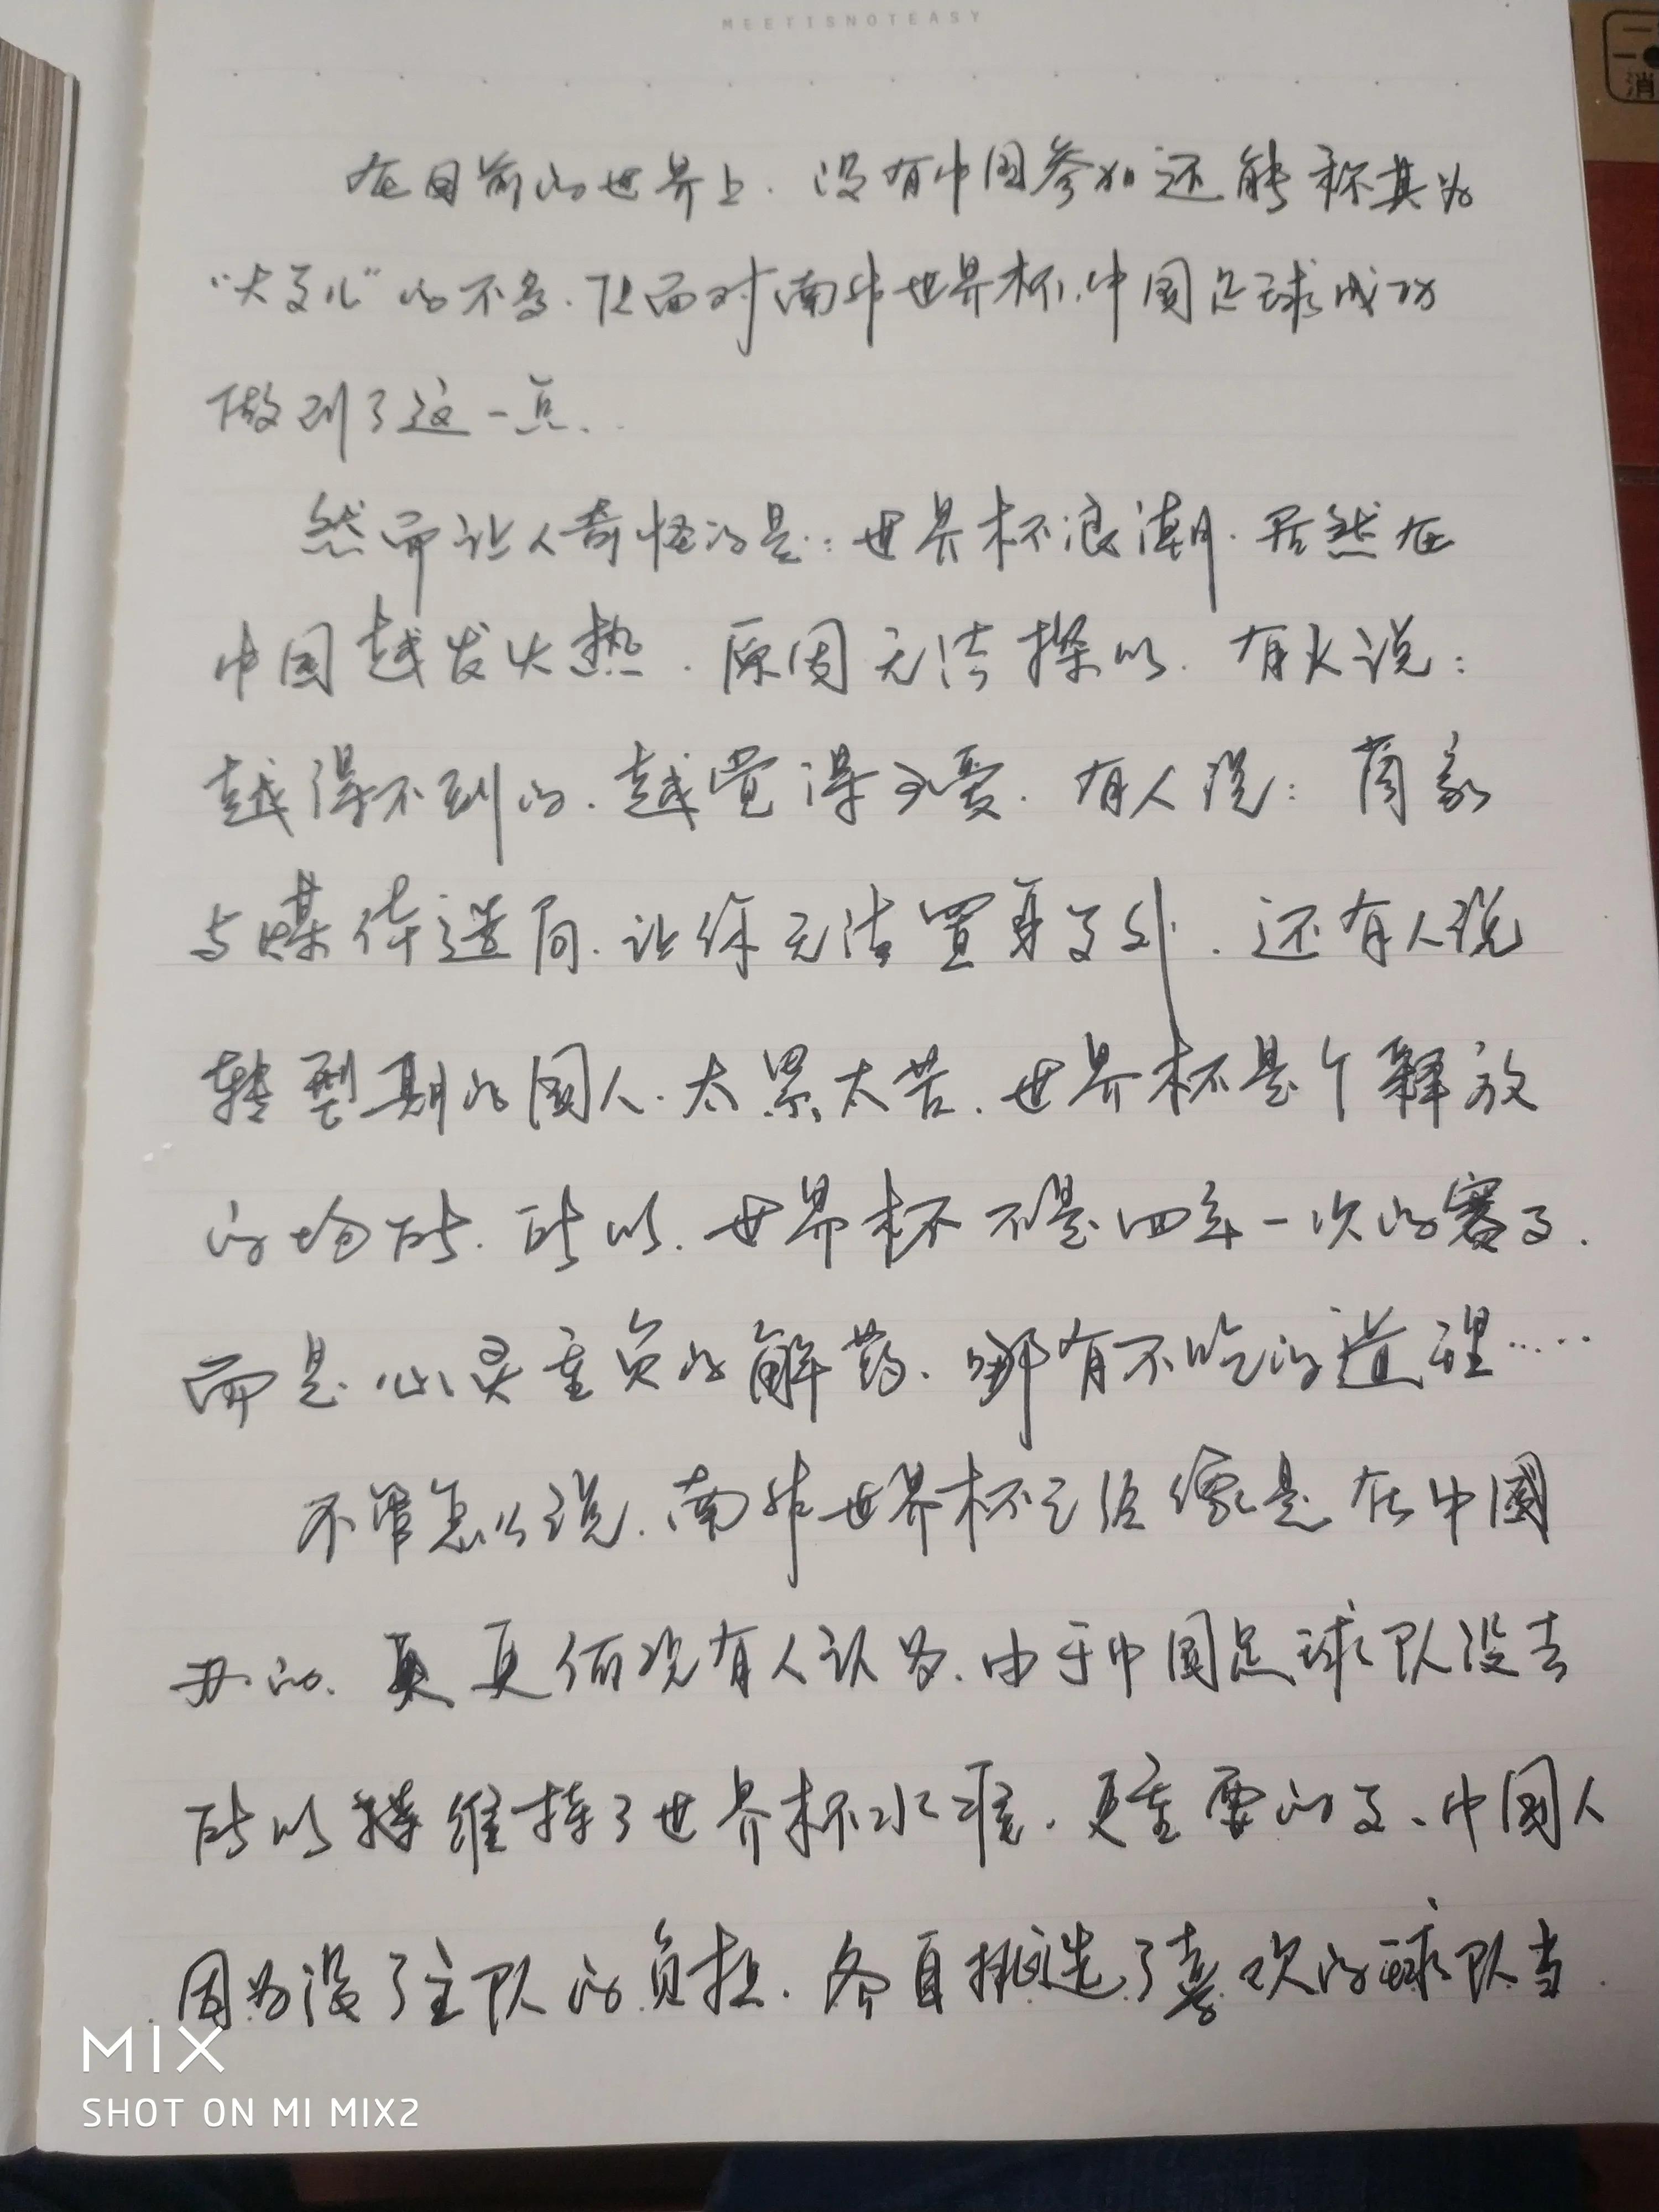 MEETISNOTEASY
消
在目前的世界上.没有中国参加还能称其为
“大事儿”的不多.但面对南非世界杯.中国足球成功
做到了这一点.
然而让人奇怪的是:世界杯浪潮.居然在
中国越发火热.原因无法探以.有人说:
越得不到的.越觉得可爱.有人说:商家
与媒体造局.让你无法置身事外.还有人说
转型期的国人.太累太苦.世界杯是个释放
的场所.所以.世界杯不是四年一次的赛事.
而是心灵重负的解药、哪有不吃的道理……
不管怎么说.南非世界杯已经像是在中国
办的.真更何况有人认为.由于中国足球队没去
所以维持了世界杯水准.更重要的是、中国人
因为没了主队的负担.各自挑选了喜欢的球队当
MIX
SHOT ON MI MIX2